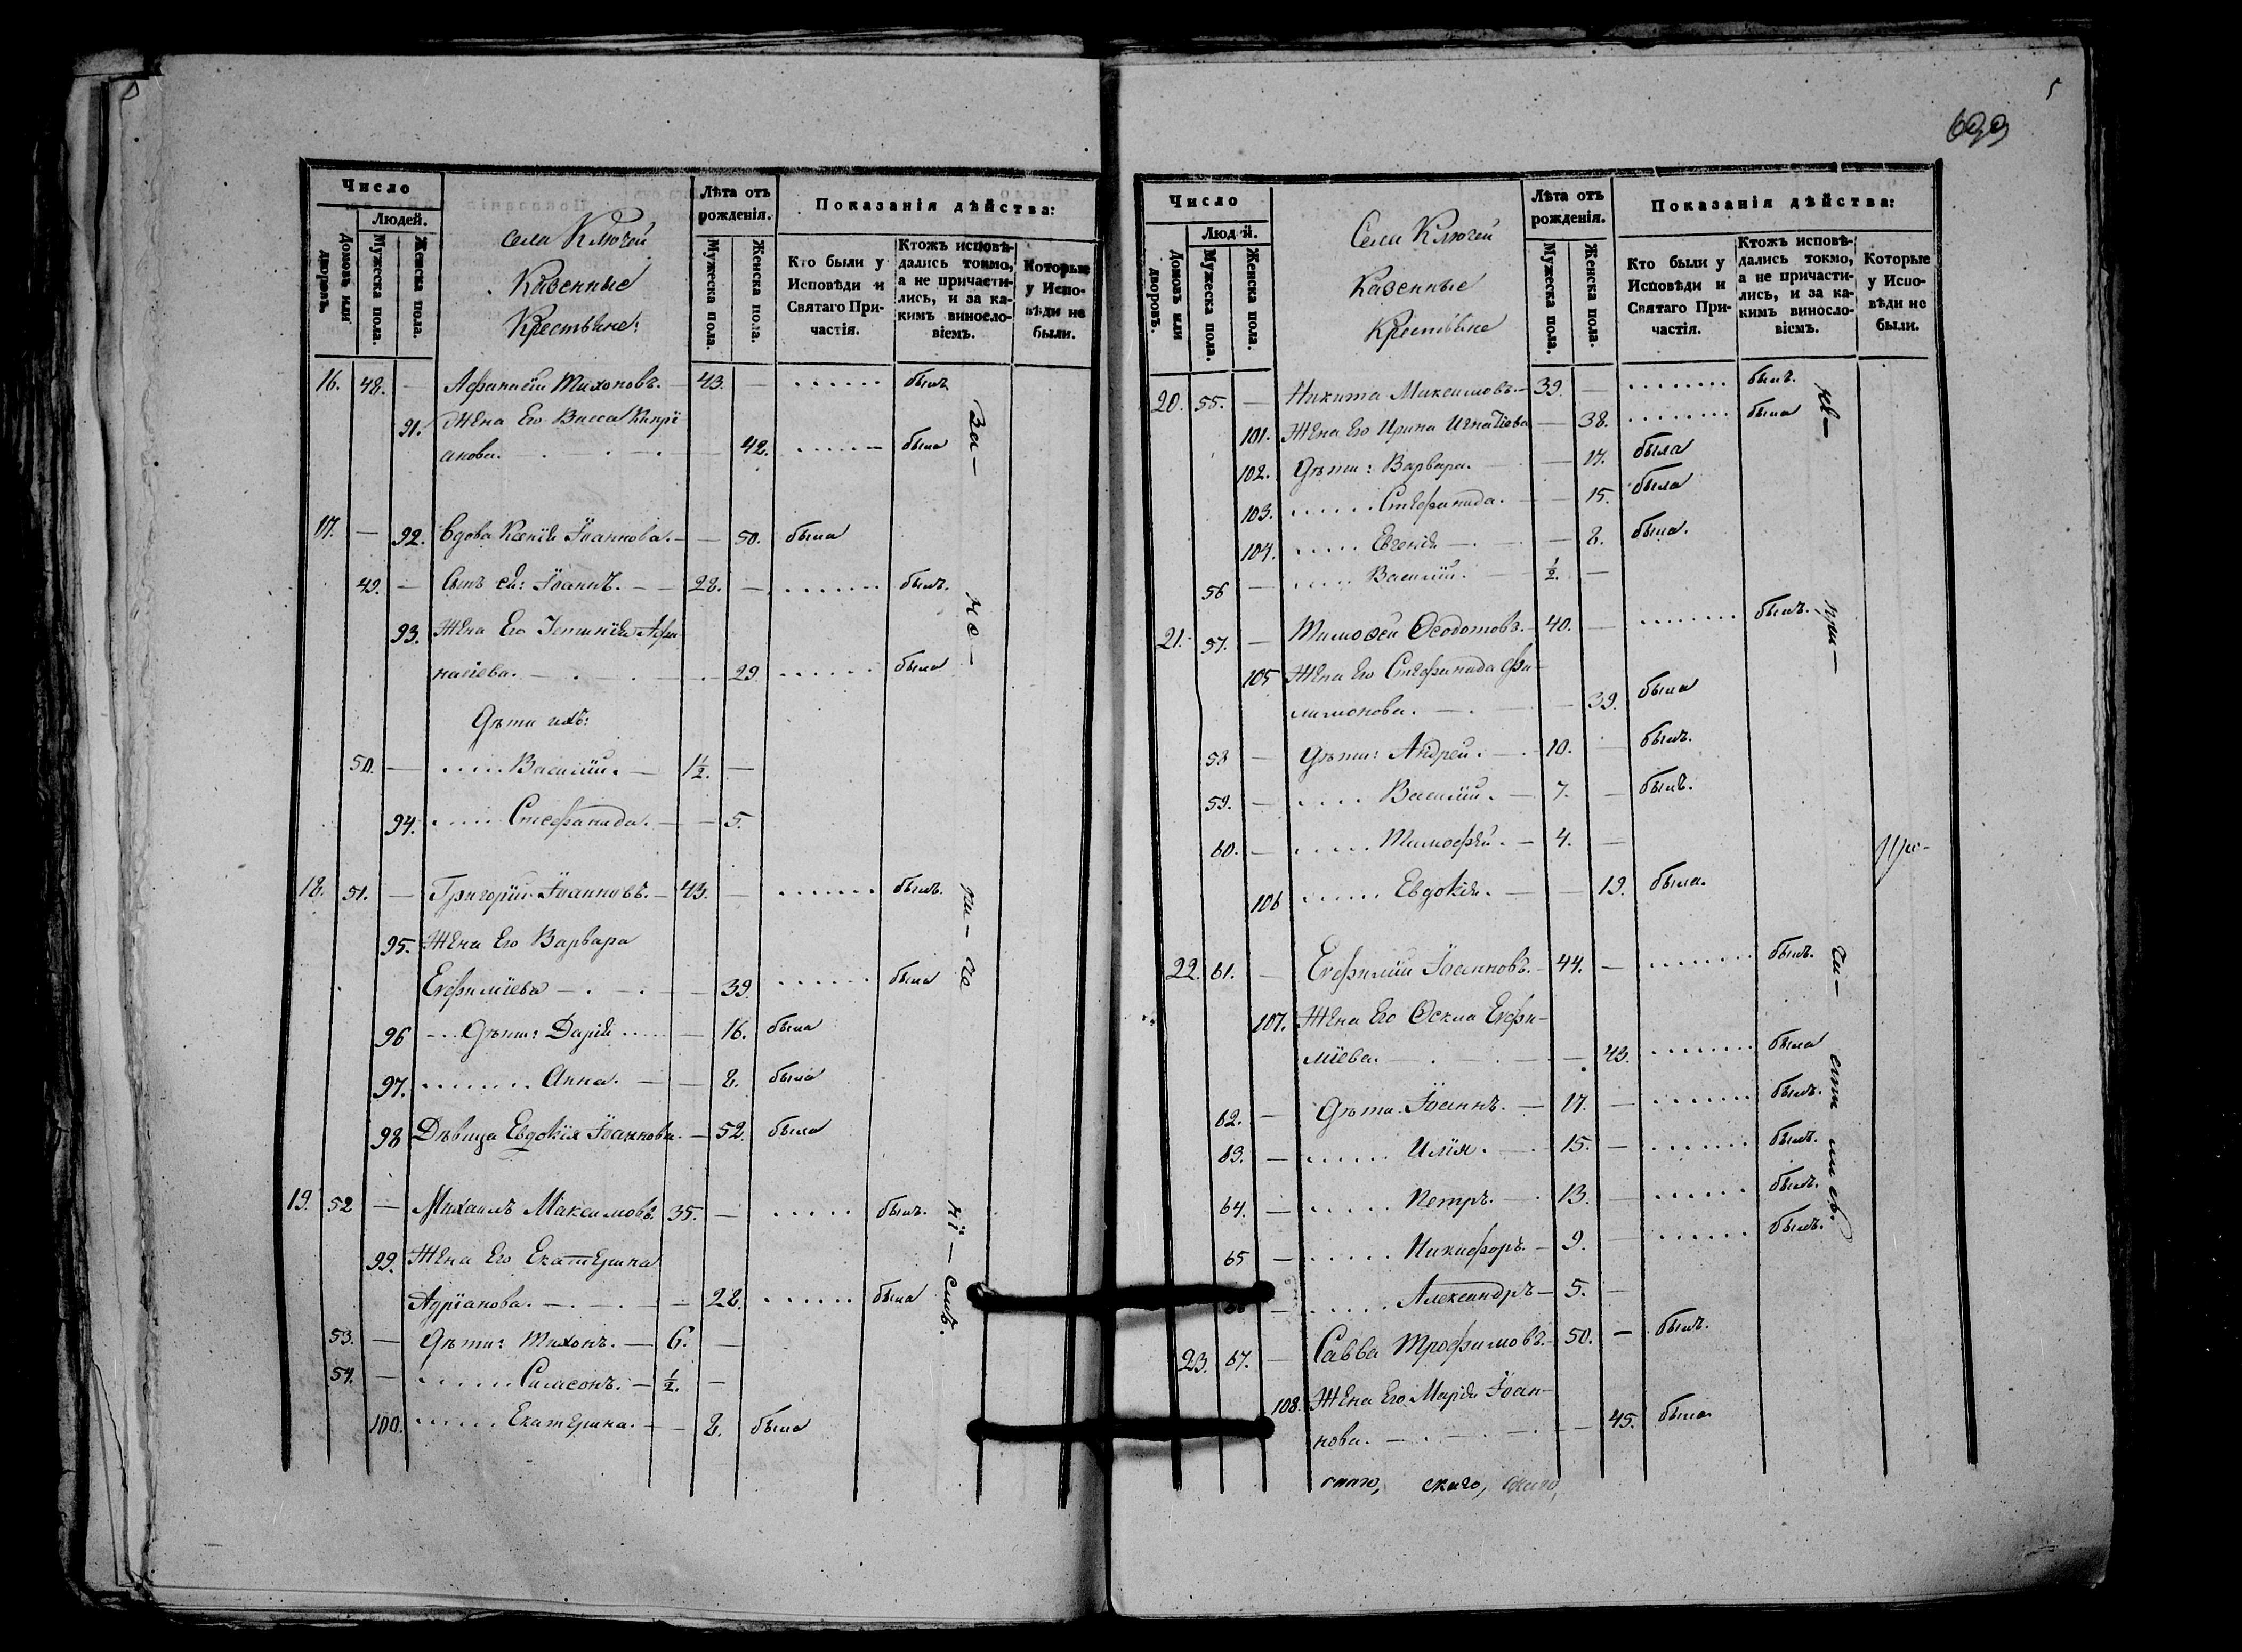 699
Число
Людей.
Домовъ или дворовъ.
Мужеска пола.
Женска пола.
села Ключей
Казенные
Крестьяне:
Лѣта отъ рожденія.
Мужеска пола.
Женска пола.
Показанія дѣйства:
Кто были у Исповѣди и Святаго Причастія.
Ктожъ исповѣдались токмо, а не причастились, и за какимъ винословіемъ.
Которые у Исповѣди не были.
16. 48. — Афанасій Тихоновъ. — 43. — ....... былъ
91. Жена Его Васса Кипрі
анова. — 42. ....... была
17. — 92. Вдова Ксенія Іоаннова. — — 50. была
49. — Сынъ ея: Іоаннъ. — — 28. — ....... былъ.
93. Жена Его Афа
насіева. — 29. ....... была
Дѣти ихъ:
50. — ..... Василій. — 1½. —
94. ..... Стефанида. — — 5.
18. 51. — Григорій Іоанновъ. — 43. — ....... былъ.
95. Жена Его Варвара
Евфиміева — — 39. ....... была
96 — .. Дѣти: Дарія ..... — 16. была
97. ........ Анна. — — 8. была
98 Дѣвица Евдокія Іоаннова. — 52. была
19. 52 — Михаилъ Максимовъ. 35. — ..... былъ.
99. Жена Его Екатерина
Адріанова. — — 28. ...... была
53. — Дѣти: Тихонъ. — 6. —
54. — ....... Самсонъ. — ½. —
100. ...... Екатерина. — — 8. была
За — не —
Число
Людей.
Домовъ или дворовъ.
Мужеска пола.
Женска пола.
Села Ключей
Казенные
Крестьяне
Лѣта отъ рожденія.
Мужеска пола.
Женска пола.
Показанія дѣйства:
Кто были у Исповѣди и Святаго Причастія.
Ктожъ исповѣдались токмо, а не причастились, и за какимъ винословіемъ.
Которые у Исповѣди не были.
20. 55. — Никита Максимовъ. — 39. — ........ былъ.
101. Жена Его Ирина Игнатіева — 38. ........ была
102. Дѣти: Варвара. — — 17. была
103. ...... Стефанида. — — 15. была
104. ..... Евгенія — — 8. была.
56 — ..... Василій. — ½. —
21. 57. — Тимоѳей Ѳеодотовъ. — 40. — ........ былъ.
105 Жена Его Стефанида Фи
лимонова. — — 39. была
58 — Дѣти: Андрей. — 10. — былъ.
59. — .... Василій. — 7. — былъ.
60. — ..... Тимофей. — 4. —
106 ...... Евдокія. — — 19. была.
22. 61. — Евфимій Іоанновъ. — 44. — ....... былъ.
107. Жена Его Ѳекла Евфи—
міева. — — 43. ....... была
62. — Дѣти. Іоаннъ. — 17. — ....... былъ.
63. — ...... Илія. — 15. — ....... былъ.
64. — ...... Петръ. — 13. — ...... былъ.
65 — ..... Никифоръ. — 9. — ...... былъ.
66 — ..... Александръ — 5. —
23. 67. — Савва Трофимовъ. — 50. — былъ.
108. Жена Его Марія Іоан—
нова. — — 45. была
не — при — ча — стились.